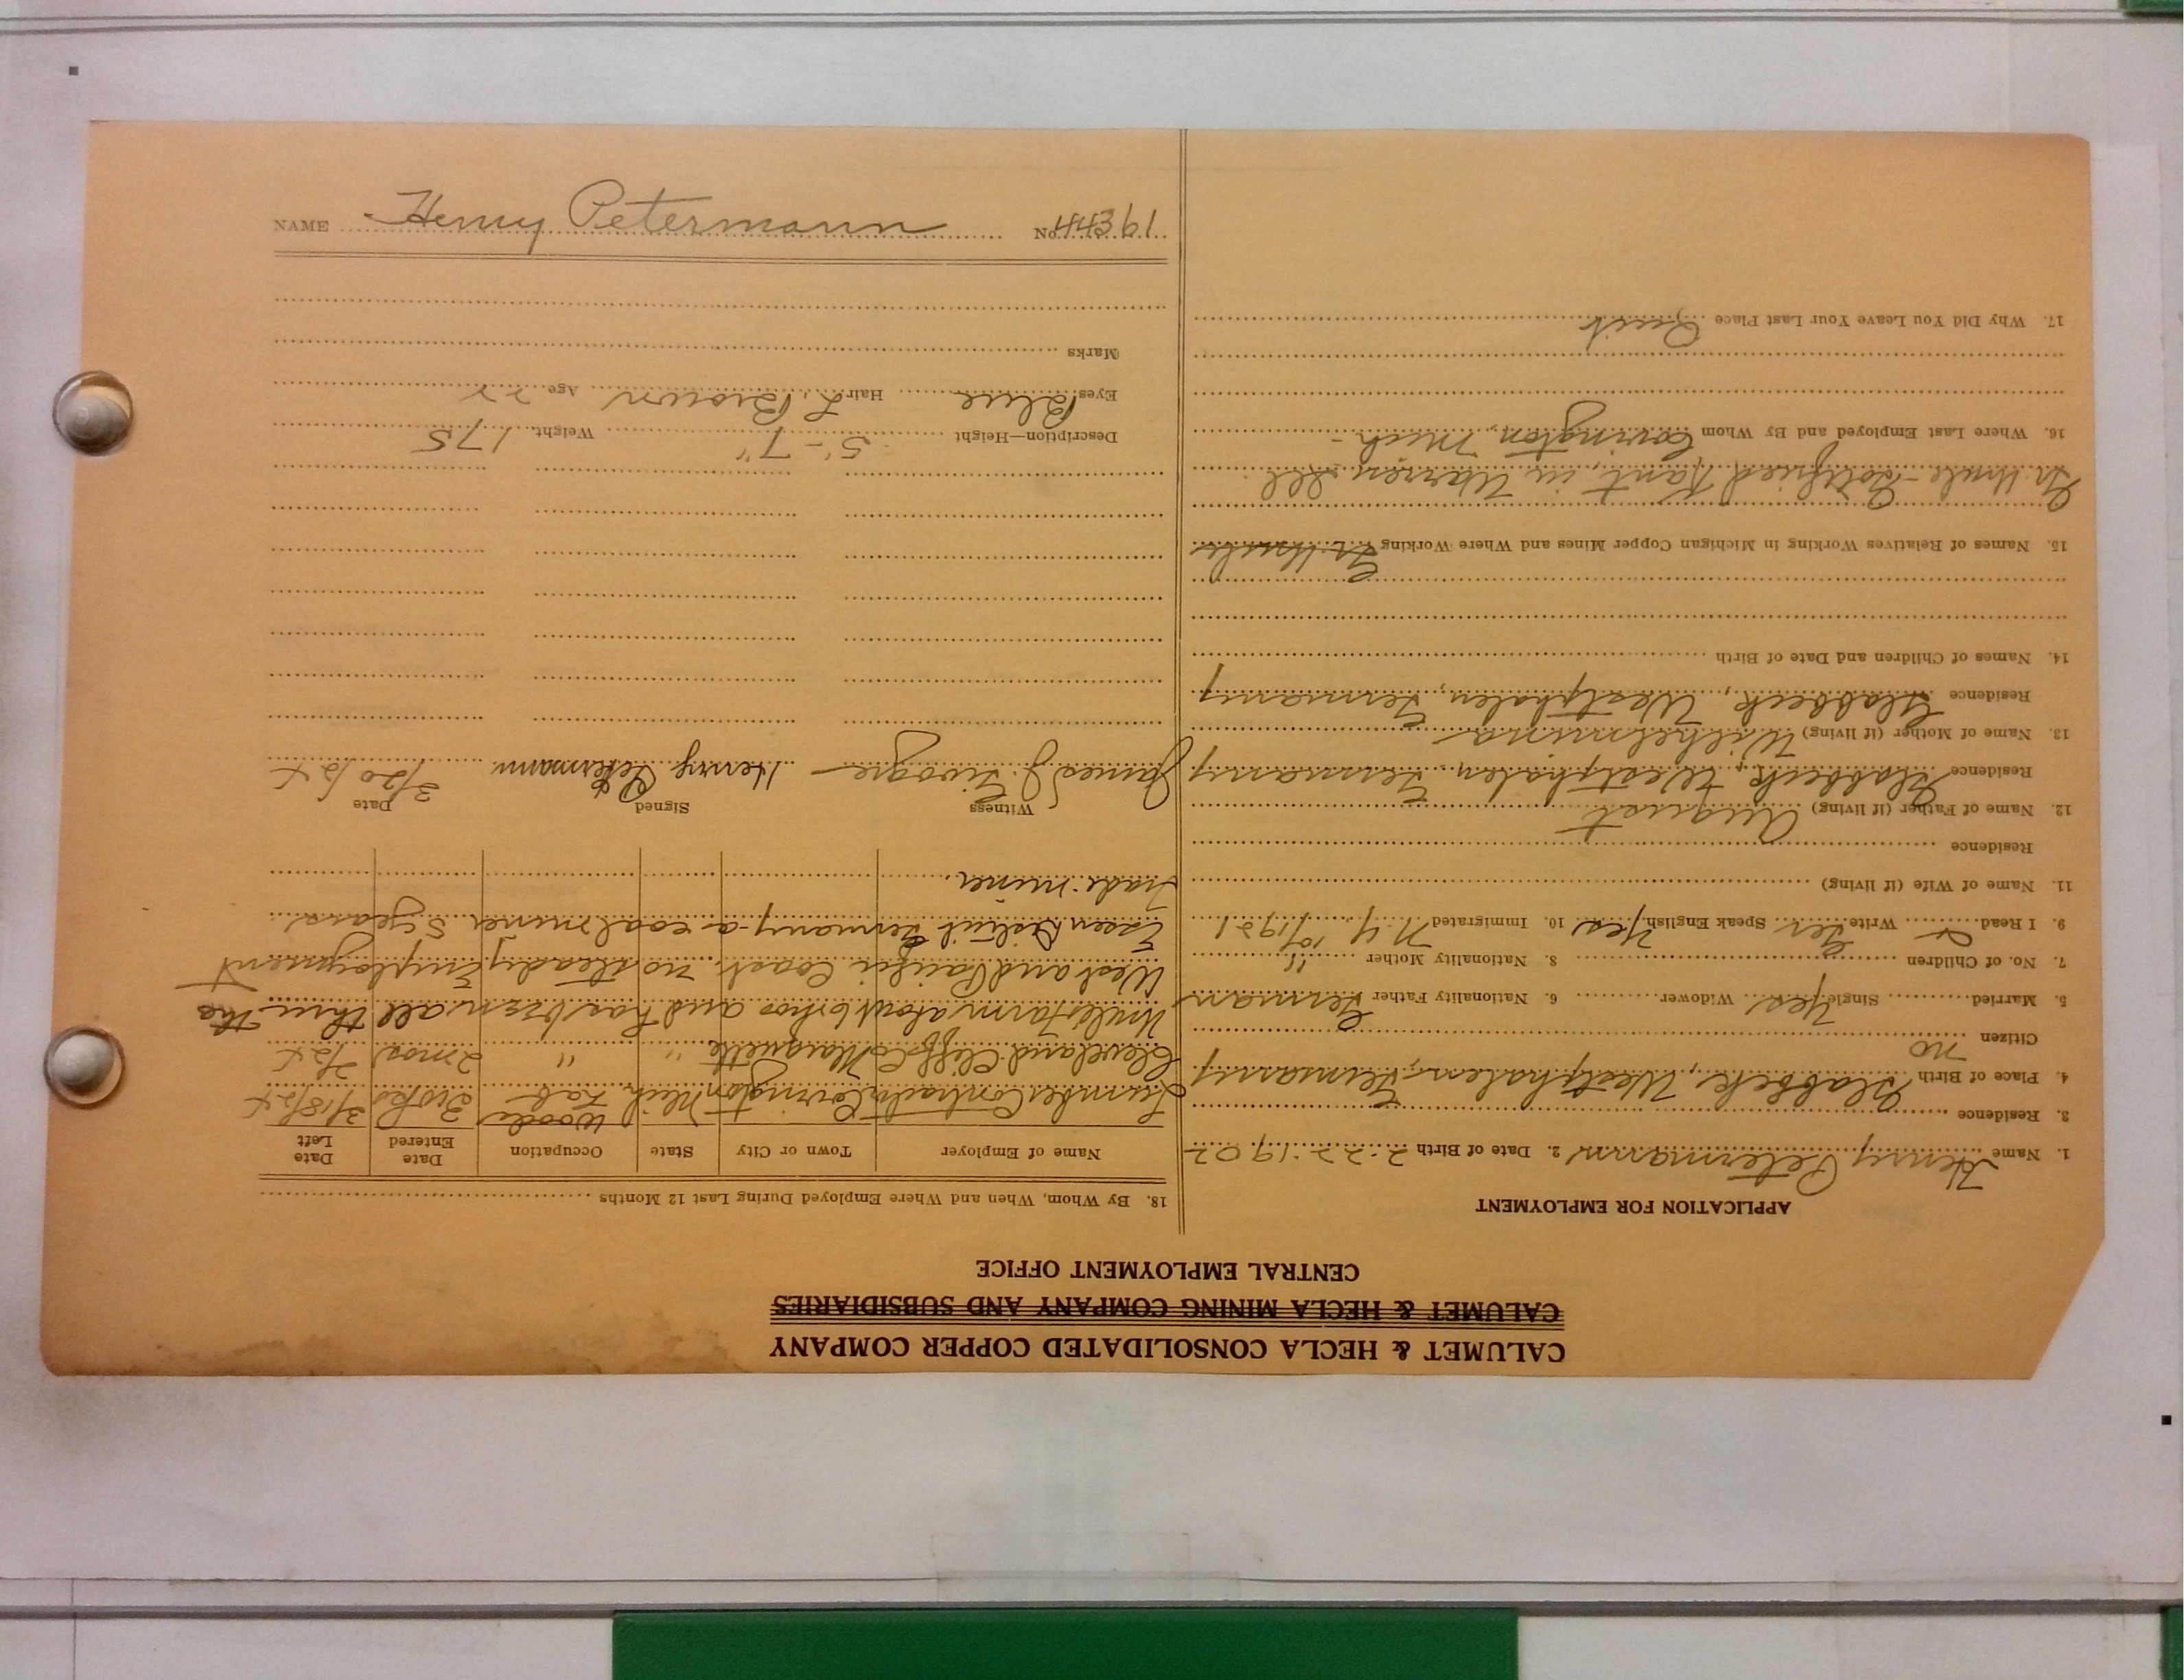 CALUMET & HECLA CONSOLIDATED COPPER COMPANY
CALUMET & HECLA MINING COMPANY AND SUBSIDIARIES
CENTRAL EMPLOYMENT OFFICE
APPLICATION FOR EMPLOYMENT
1. Name Henry Petermann 2. Date of Birth 2-22-1902
3. Residence
4. Place of Birth Gladbeck, Westphalen, Germany
Citizen no
5. Married Single yes Widower 6. Nationality Father German
7. No. of Children 8. Nationality Mother "
9. I Read Write Ger Speak English yes 10. Immigrated N.Y. 10/1921
11. Name of Wife (if living)
Residence
12. Name of Father (if living) August
Residence Gladbeck, Westphalen, Germany
13. Name of Mother (if living) Wilhelmina
Residence Gladbeck, Westphalen, Germany
14. Names of Children and Date of Birth
15. Names of Relatives Working in Michigan Copper Mines and Where Working Gr. Uncle
Gr. Uncle - Gottfried Kant, in Warren Ill.
16. Where Last Employed and By Whom Covington, Mich -
17. Why Did You Leave Your Last Place Quit
18. By Whom, When and Where Employed During Last 12 Months
Name of Employer Town or City State Occupation Date Entered Date Left
Lumber Contractor Covington Mich Woods Lab 3 wks 3/18/24
Cleveland Cliffs Co Marquette " " 2 mos 2/24
Uncles Farm about 6 mos and has been all thru the
West and Pacific Coast. no steady Employment
Essen District Germany - a coal miner 5 years.
Trade miner.
Witness Signed Date
James J. Henry Petermann 3/20/24
Description—Height 5'-7" Weight 175
Eyes Blue Hair L. Brown Age 22
Marks
NAME Henry Petermann No.